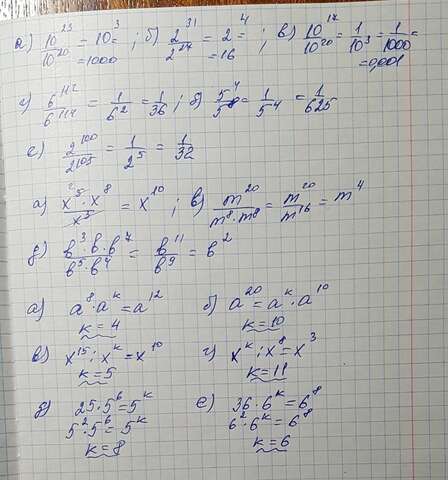 а) 10²³/10²⁰ = 10³ = 1000 ; б) 2³¹/2²⁷ = 2⁴ = 16 ; в) 10¹⁷/10²⁰ = 1/10³ = 1/1000 = 0,001
г) 6¹¹²/6¹¹⁴ = 1/6² = 1/36 ; д) 5⁴/5⁸ = 1/5⁴ = 1/625
е) 2¹⁰⁰/2¹⁰⁵ = 1/2⁵ = 1/32
а) x⁵ · x⁸/x³ = x¹⁰ ; в) m²⁰/m⁸ · m⁸ = m²⁰/m¹⁶ = m⁴
д) b³ · b · b⁷/b⁵ · b⁴ = b¹¹/b⁹ = b²
а) a⁸ · aᵏ = a¹² б) a²⁰ = aᵏ · a¹⁰
k = 4 k = 10
в) x¹⁵ : xᵏ = x¹⁰ г) xᵏ : x⁸ = x³
k = 5 k = 11
д) 25 · 5⁶ = 5ᵏ е) 36 · 6ᵏ = 6⁸
5² · 5⁶ = 5ᵏ 6² · 6ᵏ = 6⁸
k = 8 k = 6